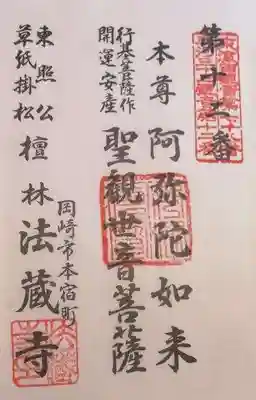 第十二番
本尊 阿弥陀如来
行基菩薩作
開運安産
聖観世音菩薩
岡崎市本宿町
東照公
草紙掛松
檀林 法蔵寺